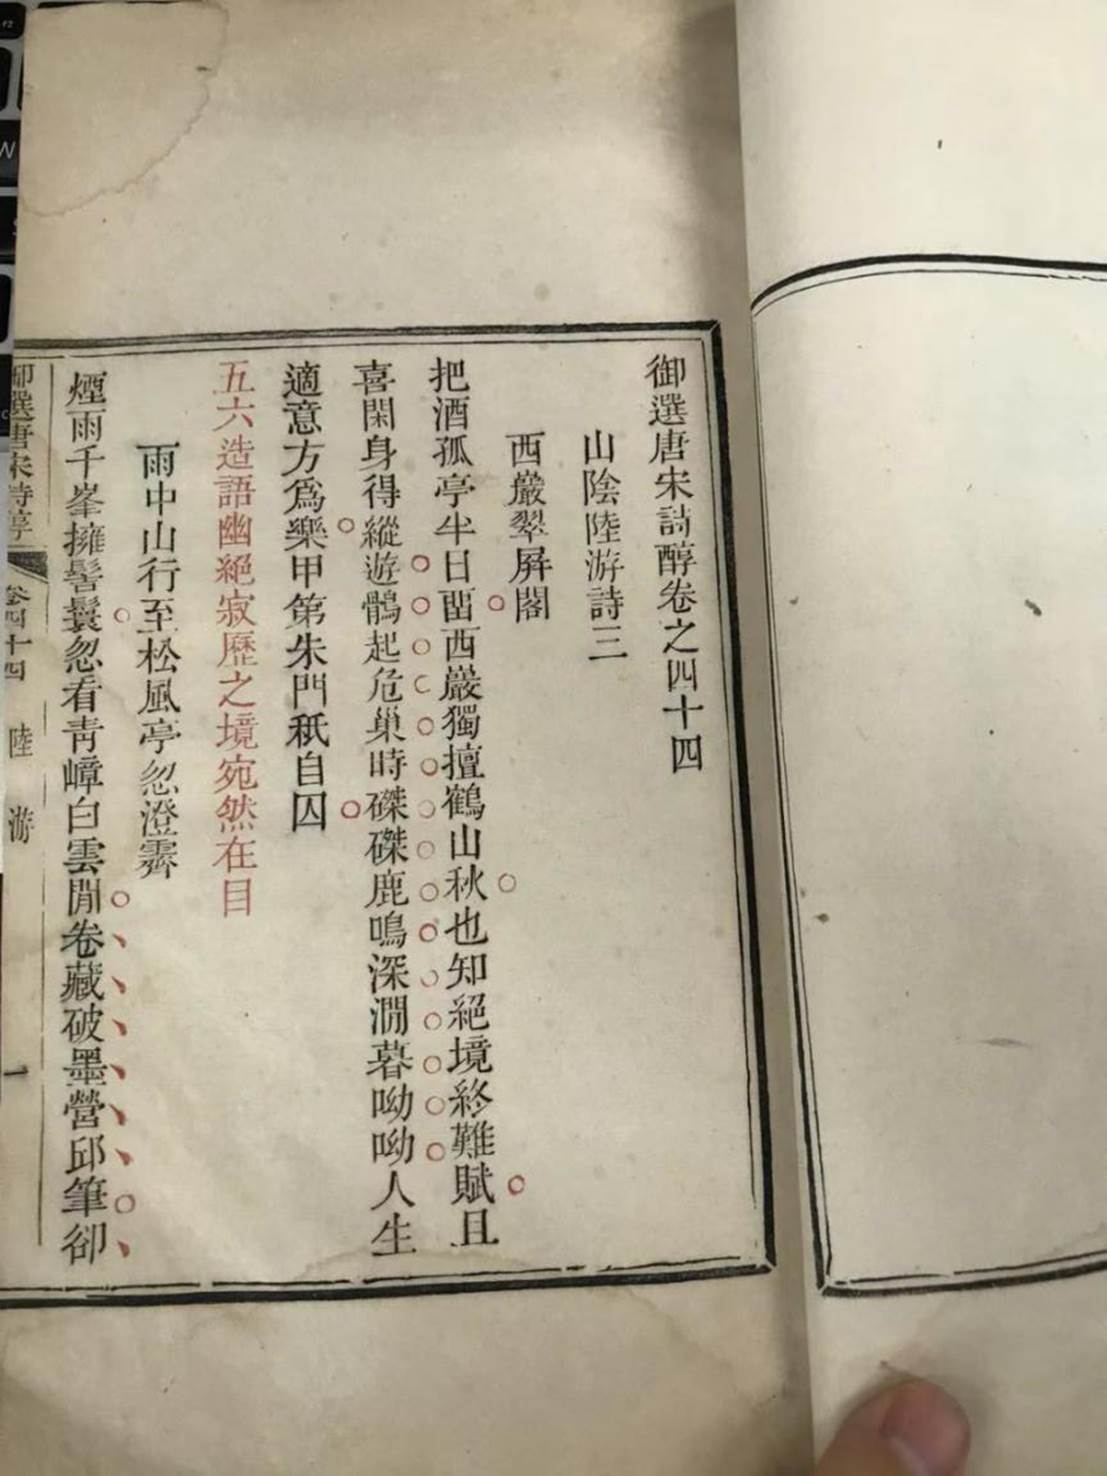 御選唐宋詩醇卷之四十四
山陰陸游詩三
西巖翠屏閣
把酒孤亭半日畱西巖獨擅鶴山秋也知絕境終難賦且
喜閑身得縱遊鶻起危巢時磔磔鹿鳴深澗暮呦呦人生
適意方爲樂甲第朱門秖自囚
五六造語幽絕寂歷之境宛然在目
雨中山行至松風亭忽澄霽
煙雨千峯擁髻鬟忽看靑嶂白雲閒卷藏破墨營邱筆卻
御選唐宋詩醇 卷四十四 陸游 一